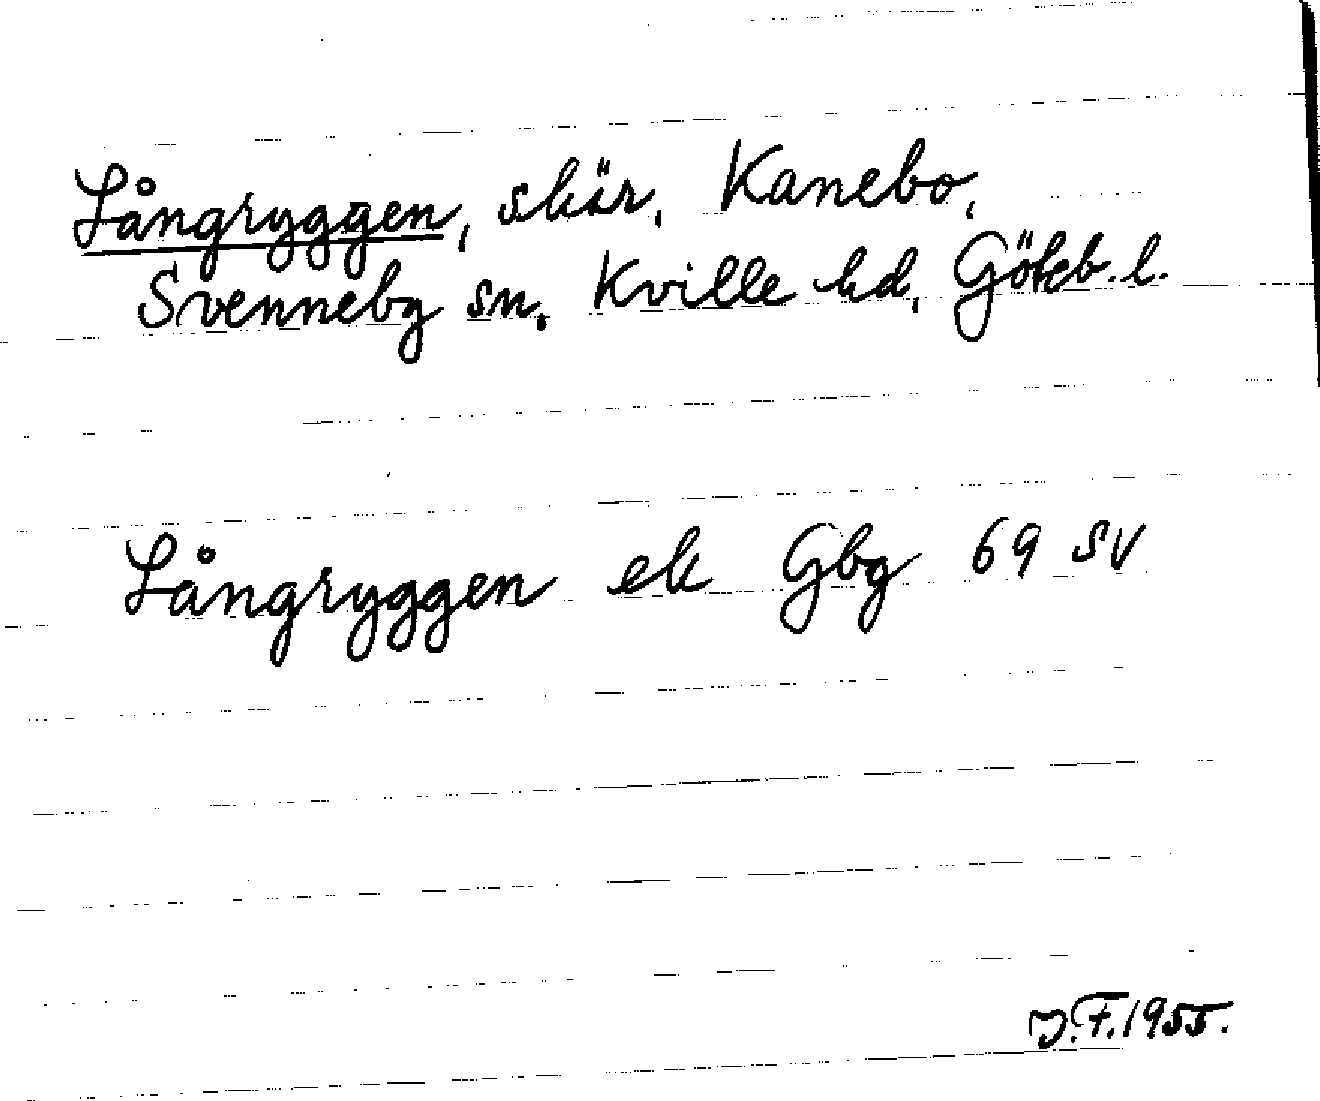 Långryggen, skär, Kanebo,
Svennebg sn. Kville hd, Göteb. l.
Långryggen ek Gbg 69 SV
J.F. 1955.